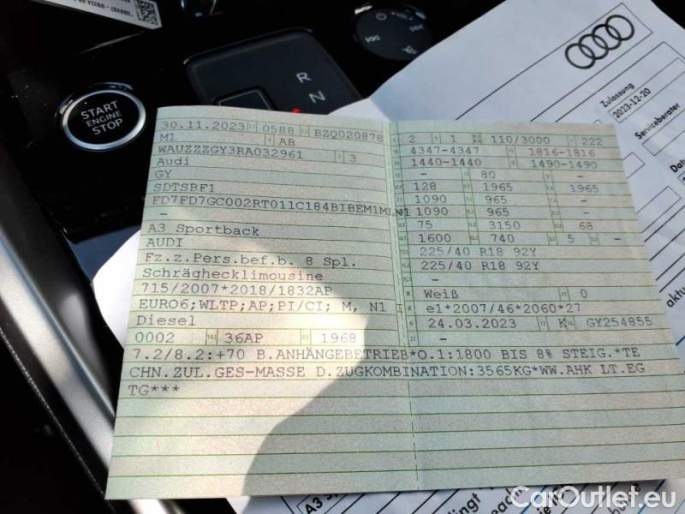 START
ENGINE
STOP
R
N
Zulassung
2023-12-20
Serviceberater
30.11.2023 0588 BZQ020878
M1 AB
WAUZZZGY3RA032961 3
Audi
GY
SDTSBF1
FD7FD7GC002RT011C184BIBEM1MLN1
-
A3 Sportback
AUDI
Fz.z.Pers.bef.b. 8 Spl.
Schräghecklimousine
715/2007*2018/1832AP
EURO6;WLTP;AP;PI/CI; M, N1 I
Diesel
0002 36AP 1968
2 1 110/3000 222
4347-4347 1816-1816
1440-1440 1490-1490
- 80 -
128 1965 1965
1090 965 -
1090 965 -
75 3150 68
1600 740 5 -
225/40 R18 92Y
225/40 R18 92Y
-
Weiß 0
e1*2007/46*2060*27
24.03.2023 K GY254855
-
7.2/8.2:+70 B.ANHÄNGEBETRIEB*O.1:1800 BIS 8% STEIG.*TE
CHN.ZUL.GES-MASSE D.ZUGKOMBINATION:3565KG*WW.AHK LT.EG
TG***
CarOutlet.eu